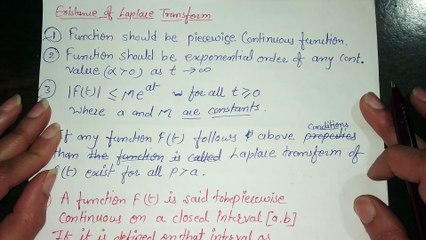 Existance of Laplace Transform
① Function should be piecewise Continuous function.
② Function should be exponential order of any cont.
value (α>0) as t→∞
③ |F(t)| ≤ Me^{at} for all t≥0
where a and M are constants.
If any function F(t) follows above properties conditions
than the function is called Laplace transform of
(t) exist for all P>a.
A function F(t) is said to be piecewise
continuous on a closed interval [a,b]
If it is defined on that interval as